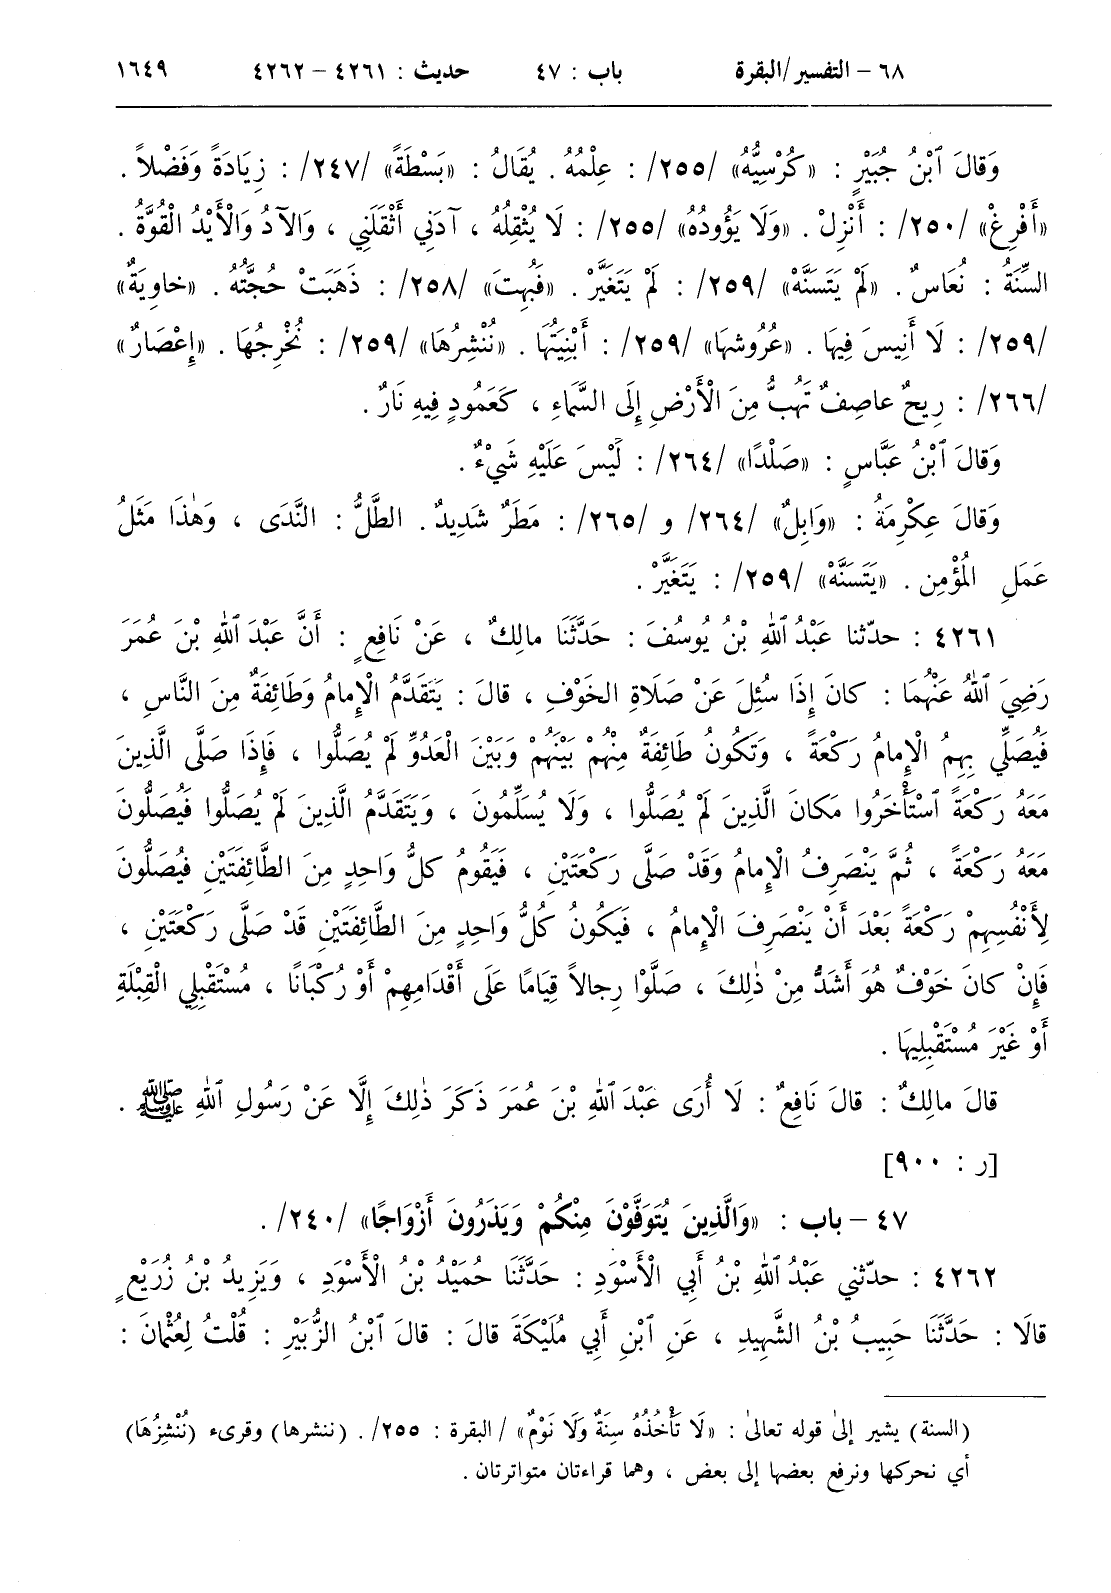 ٦٨ – التفسير/البقرة باب : ٤٧ حديث : ٤٢٦١ – ٤٢٦٢ ١٦٤٩
وَقالَ ٱبْنُ جُبَيْرٍ : «كُرْسِيُّهُ» /٢٥٥/ : عِلْمُهُ . يُقَالُ : «بَسْطَةً» /٢٤٧/ : زِيَادَةً وَفَضْلاً .
«أَفْرِغْ» /٢٥٠/ : أَنْزِلْ . «وَلَا يَؤُودُهُ» /٢٥٥/ : لَا يُثْقِلُهُ ، آدَنِي أَثْقَلَنِي ، وَالآدُ وَالْأَيْدُ الْقُوَّةُ .
السِّنَةُ : نُعَاسٌ . «لَمْ يَتَسَنَّهْ» /٢٥٩/ : لَمْ يَتَغَيَّرْ . «فَبُهِتَ» /٢٥٨/ : ذَهَبَتْ حُجَّتُهُ . «خاوِيَةٌ»
/٢٥٩/ : لَا أَنِيسَ فِيهَا . «عُرُوشِهَا» /٢٥٩/ : أَبْنِيَتُهَا . «نُنْشِرُهَا» /٢٥٩/ : نُخْرِجُهَا . «إِعْصَارٌ»
/٢٦٦/ : رِيحٌ عاصِفٌ تَهُبُّ مِنَ الْأَرْضِ إِلَى السَّمَاءِ ، كَعَمُودٍ فِيهِ نَارٌ .
وَقالَ ٱبْنُ عَبَّاسٍ : «صَلْدًا» /٢٦٤/ : لَيْسَ عَلَيْهِ شَيْءٌ .
وَقالَ عِكْرِمَةُ : «وَابِلٌ» /٢٦٤/ و /٢٦٥/ : مَطَرٌ شَدِيدٌ . الطَّلُّ : النَّدَى ، وَهٰذَا مَثَلُ
عَمَلِ الْمُؤْمِنِ . «يَتَسَنَّهْ» /٢٥٩/ : يَتَغَيَّرْ .
٤٢٦١ : حدّثنا عَبْدُ ٱللهِ بْنُ يُوسُفَ : حَدَّثَنَا مالِكٌ ، عَنْ نَافِعٍ : أَنَّ عَبْدَ ٱللهِ بْنَ عُمَرَ
رَضِيَ ٱللهُ عَنْهُمَا : كانَ إِذَا سُئِلَ عَنْ صَلَاةِ الخَوْفِ ، قالَ : يَتَقَدَّمُ الْإِمامُ وَطَائِفَةٌ مِنَ النَّاسِ ،
فَيُصَلِّي بِهِمُ الْإِمامُ رَكْعَةً ، وَتَكُونُ طَائِفَةٌ مِنْهُمْ بَيْنَهُمْ وَبَيْنَ الْعَدُوِّ لَمْ يُصَلُّوا ، فَإِذَا صَلَّى الَّذِينَ
مَعَهُ رَكْعَةً ٱسْتَأْخَرُوا مَكانَ الَّذِينَ لَمْ يُصَلُّوا ، وَلَا يُسَلِّمُونَ ، وَيَتَقَدَّمُ الَّذِينَ لَمْ يُصَلُّوا فَيُصَلُّونَ
مَعَهُ رَكْعَةً ، ثُمَّ يَنْصَرِفُ الْإِمامُ وَقَدْ صَلَّى رَكْعَتَيْنِ ، فَيَقُومُ كلُّ وَاحِدٍ مِنَ الطَّائِفَتَيْنِ فَيُصَلُّونَ
لِأَنْفُسِهِمْ رَكْعَةً بَعْدَ أَنْ يَنْصَرِفَ الْإِمامُ ، فَيَكُونُ كُلُّ وَاحِدٍ مِنَ الطَّائِفَتَيْنِ قَدْ صَلَّى رَكْعَتَيْنِ ،
فَإِنْ كانَ خَوْفٌ هُوَ أَشَدُّ مِنْ ذٰلِكَ ، صَلَّوْا رِجالاً قِيَامًا عَلَى أَقْدَامِهِمْ أَوْ رُكْبَانًا ، مُسْتَقْبِلِي الْقِبْلَةِ
أَوْ غَيْرَ مُسْتَقْبِلِيهَا .
قالَ مالِكٌ : قالَ نَافِعٌ : لَا أُرَى عَبْدَ ٱللهِ بْنَ عُمَرَ ذَكَرَ ذٰلِكَ إِلَّا عَنْ رَسُولِ ٱللهِ ﷺ .
[ر : ٩٠٠]
٤٧ – باب : «وَالَّذِينَ يُتَوَفَّوْنَ مِنْكُمْ وَيَذَرُونَ أَزْوَاجًا» /٢٤٠/ .
٤٢٦٢ : حدّثني عَبْدُ ٱللهِ بْنُ أَبِي الْأَسْوَدِ : حَدَّثَنَا حُمَيْدُ بْنُ الْأَسْوَدِ ، وَيَزِيدُ بْنُ زُرَيْعٍ
قالَا : حَدَّثَنَا حَبِيبُ بْنُ الشَّهِيدِ ، عَنِ ٱبْنِ أَبِي مُلَيْكَةَ قالَ : قالَ ٱبْنُ الزُّبَيْرِ : قُلْتُ لِعُثْمَانَ :
(السنة) يشير إلىٰ قوله تعالىٰ : «لَا تَأْخُذُهُ سِنَةٌ وَلَا نَوْمٌ» / البقرة : ٢٥٥/ . (ننشرها) وقرىء (نُنْشِزُهَا)
أي نحركها ونرفع بعضها إلى بعض ، وهما قراءتان متواترتان .